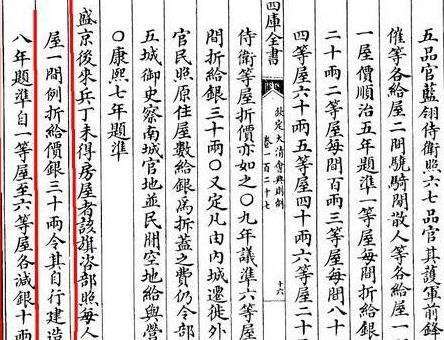 五品官藍翎侍衛照六七品官其護軍前鋒
催等各給屋二間驍騎閒散人等各給屋一
一屋價順治五年題準一等屋每間折給銀
二十兩二等屋每間百兩三等屋每間八十
四等屋六十兩五等屋四十兩六等屋二十
四庫全書
欽定大清會典則例
卷一百二十七
十六
侍衛等屋折價亦如之〇九年議準六等屋
間折給銀三十兩〇又定凡由內城遷徙外
官民照原住屋數給銀爲拆蓋之費仍令部
五城御史察南城官地並民閒空地給與營
〇康熙七年題準
盛京後來兵丁未得房屋者該旗咨部照每人
屋一間例折給價銀三十兩令其自行建造
八年題準自一等屋至六等屋各減銀十兩